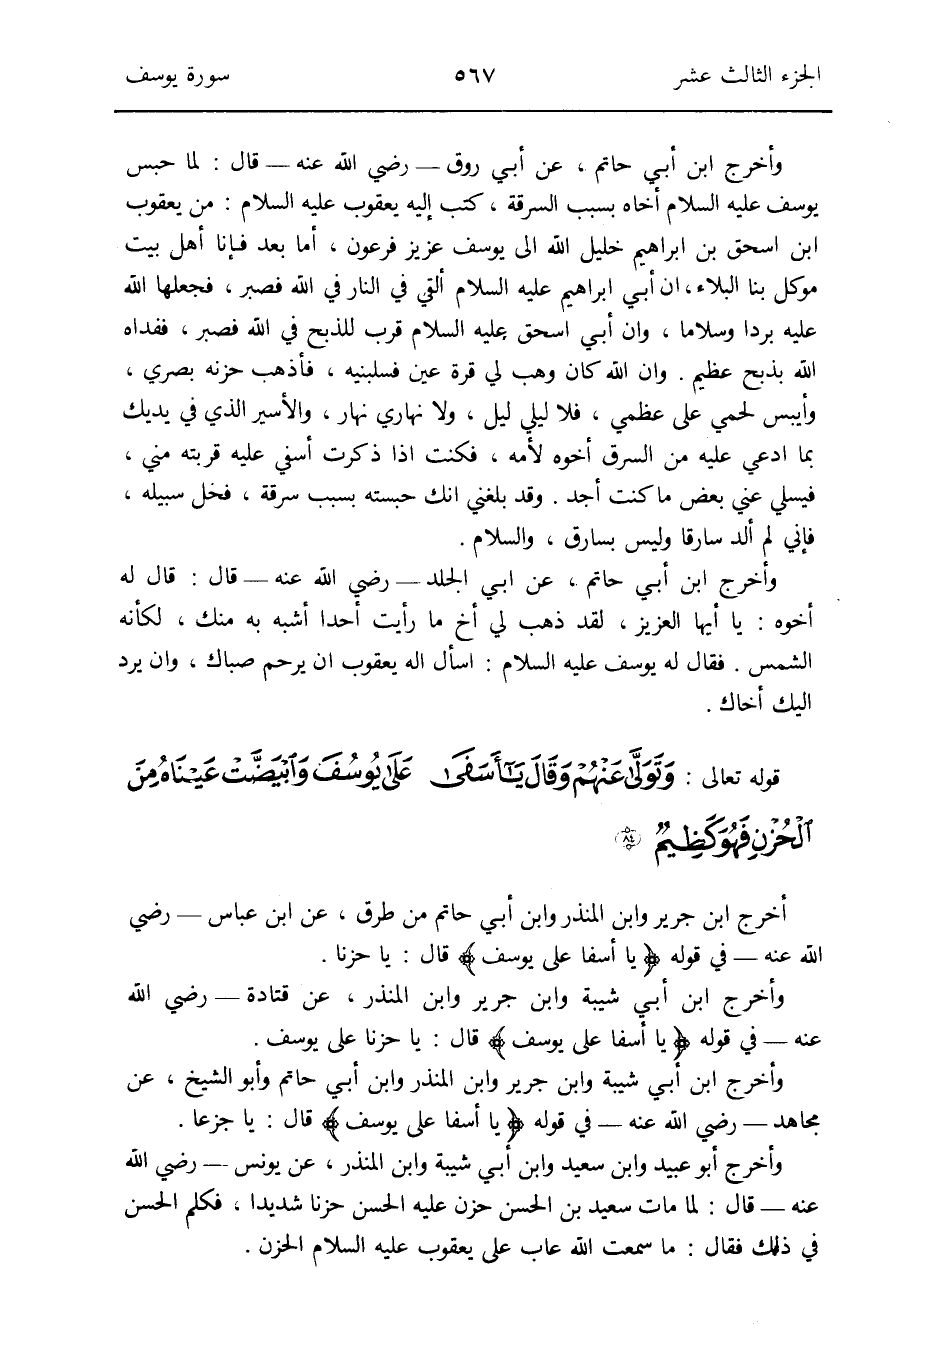 الجزء الثالث عشر ٥٦٧ سورة يوسف
وأخرج ابن أبي حاتم ، عن أبي روق — رضي الله عنه — قال : لما حبس
يوسف عليه السلام أخاه بسبب السرقة ، كتب إليه يعقوب عليه السلام : من يعقوب
ابن اسحق بن ابراهيم خليل الله الى يوسف عزيز فرعون ، أما بعد فإنا أهل بيت
موكل بنا البلاء ، ان أبي ابراهيم عليه السلام ألقي في النار في الله فصبر ، فجعلها الله
عليه بردا وسلاما ، وان أبي اسحق عليه السلام قرب للذبح في الله فصبر ، ففداه
الله بذبح عظيم . وان الله كان وهب لي قرة عين فسلبنيه ، فأذهب حزنه بصري ،
وأيبس لحمي على عظمي ، فلا ليلي ليل ، ولا نهاري نهار ، والأسير الذي في يديك
بما ادعي عليه من السرق أخوه لأمه ، فكنت اذا ذكرت أسفي عليه قربته مني ،
فيسلي عني بعض ما كنت أجد . وقد بلغني انك حبسته بسبب سرقة ، فخل سبيله ،
فإني لم ألد سارقا وليس بسارق ، والسلام .
وأخرج ابن أبي حاتم ، عن ابي الجلد — رضي الله عنه — قال : قال له
أخوه : يا أيها العزيز ، لقد ذهب لي أخ ما رأيت أحدا أشبه به منك ، لكأنه
الشمس . فقال له يوسف عليه السلام : اسأل اله يعقوب ان يرحم صباك ، وان يرد
اليك أخاك .
قوله تعالى : وَتَوَلَّىٰ عَنْهُمْ وَقَالَ يَـٰٓأَسَفَىٰ عَلَىٰ يُوسُفَ وَٱبْيَضَّتْ عَيْنَاهُ مِنَ
ٱلْحُزْنِ فَهُوَ كَظِيمٌ ﴿٨٤﴾
أخرج ابن جرير وابن المنذر وابن أبي حاتم من طرق ، عن ابن عباس — رضي
الله عنه — في قوله ﴿ يا أسفا على يوسف ﴾ قال : يا حزنا .
وأخرج ابن أبي شيبة وابن جرير وابن المنذر ، عن قتادة — رضي الله
عنه — في قوله ﴿ يا أسفا على يوسف ﴾ قال : يا حزنا على يوسف .
وأخرج ابن أبي شيبة وابن جرير وابن المنذر وابن أبي حاتم وأبو الشيخ ، عن
مجاهد — رضي الله عنه — في قوله ﴿ يا أسفا على يوسف ﴾ قال : يا جزعا .
وأخرج أبو عبيد وابن سعيد وابن أبي شيبة وابن المنذر ، عن يونس — رضي الله
عنه — قال : لما مات سعيد بن الحسن حزن عليه الحسن حزنا شديدا ، فكلم الحسن
في ذلك فقال : ما سمعت الله عاب على يعقوب عليه السلام الحزن .